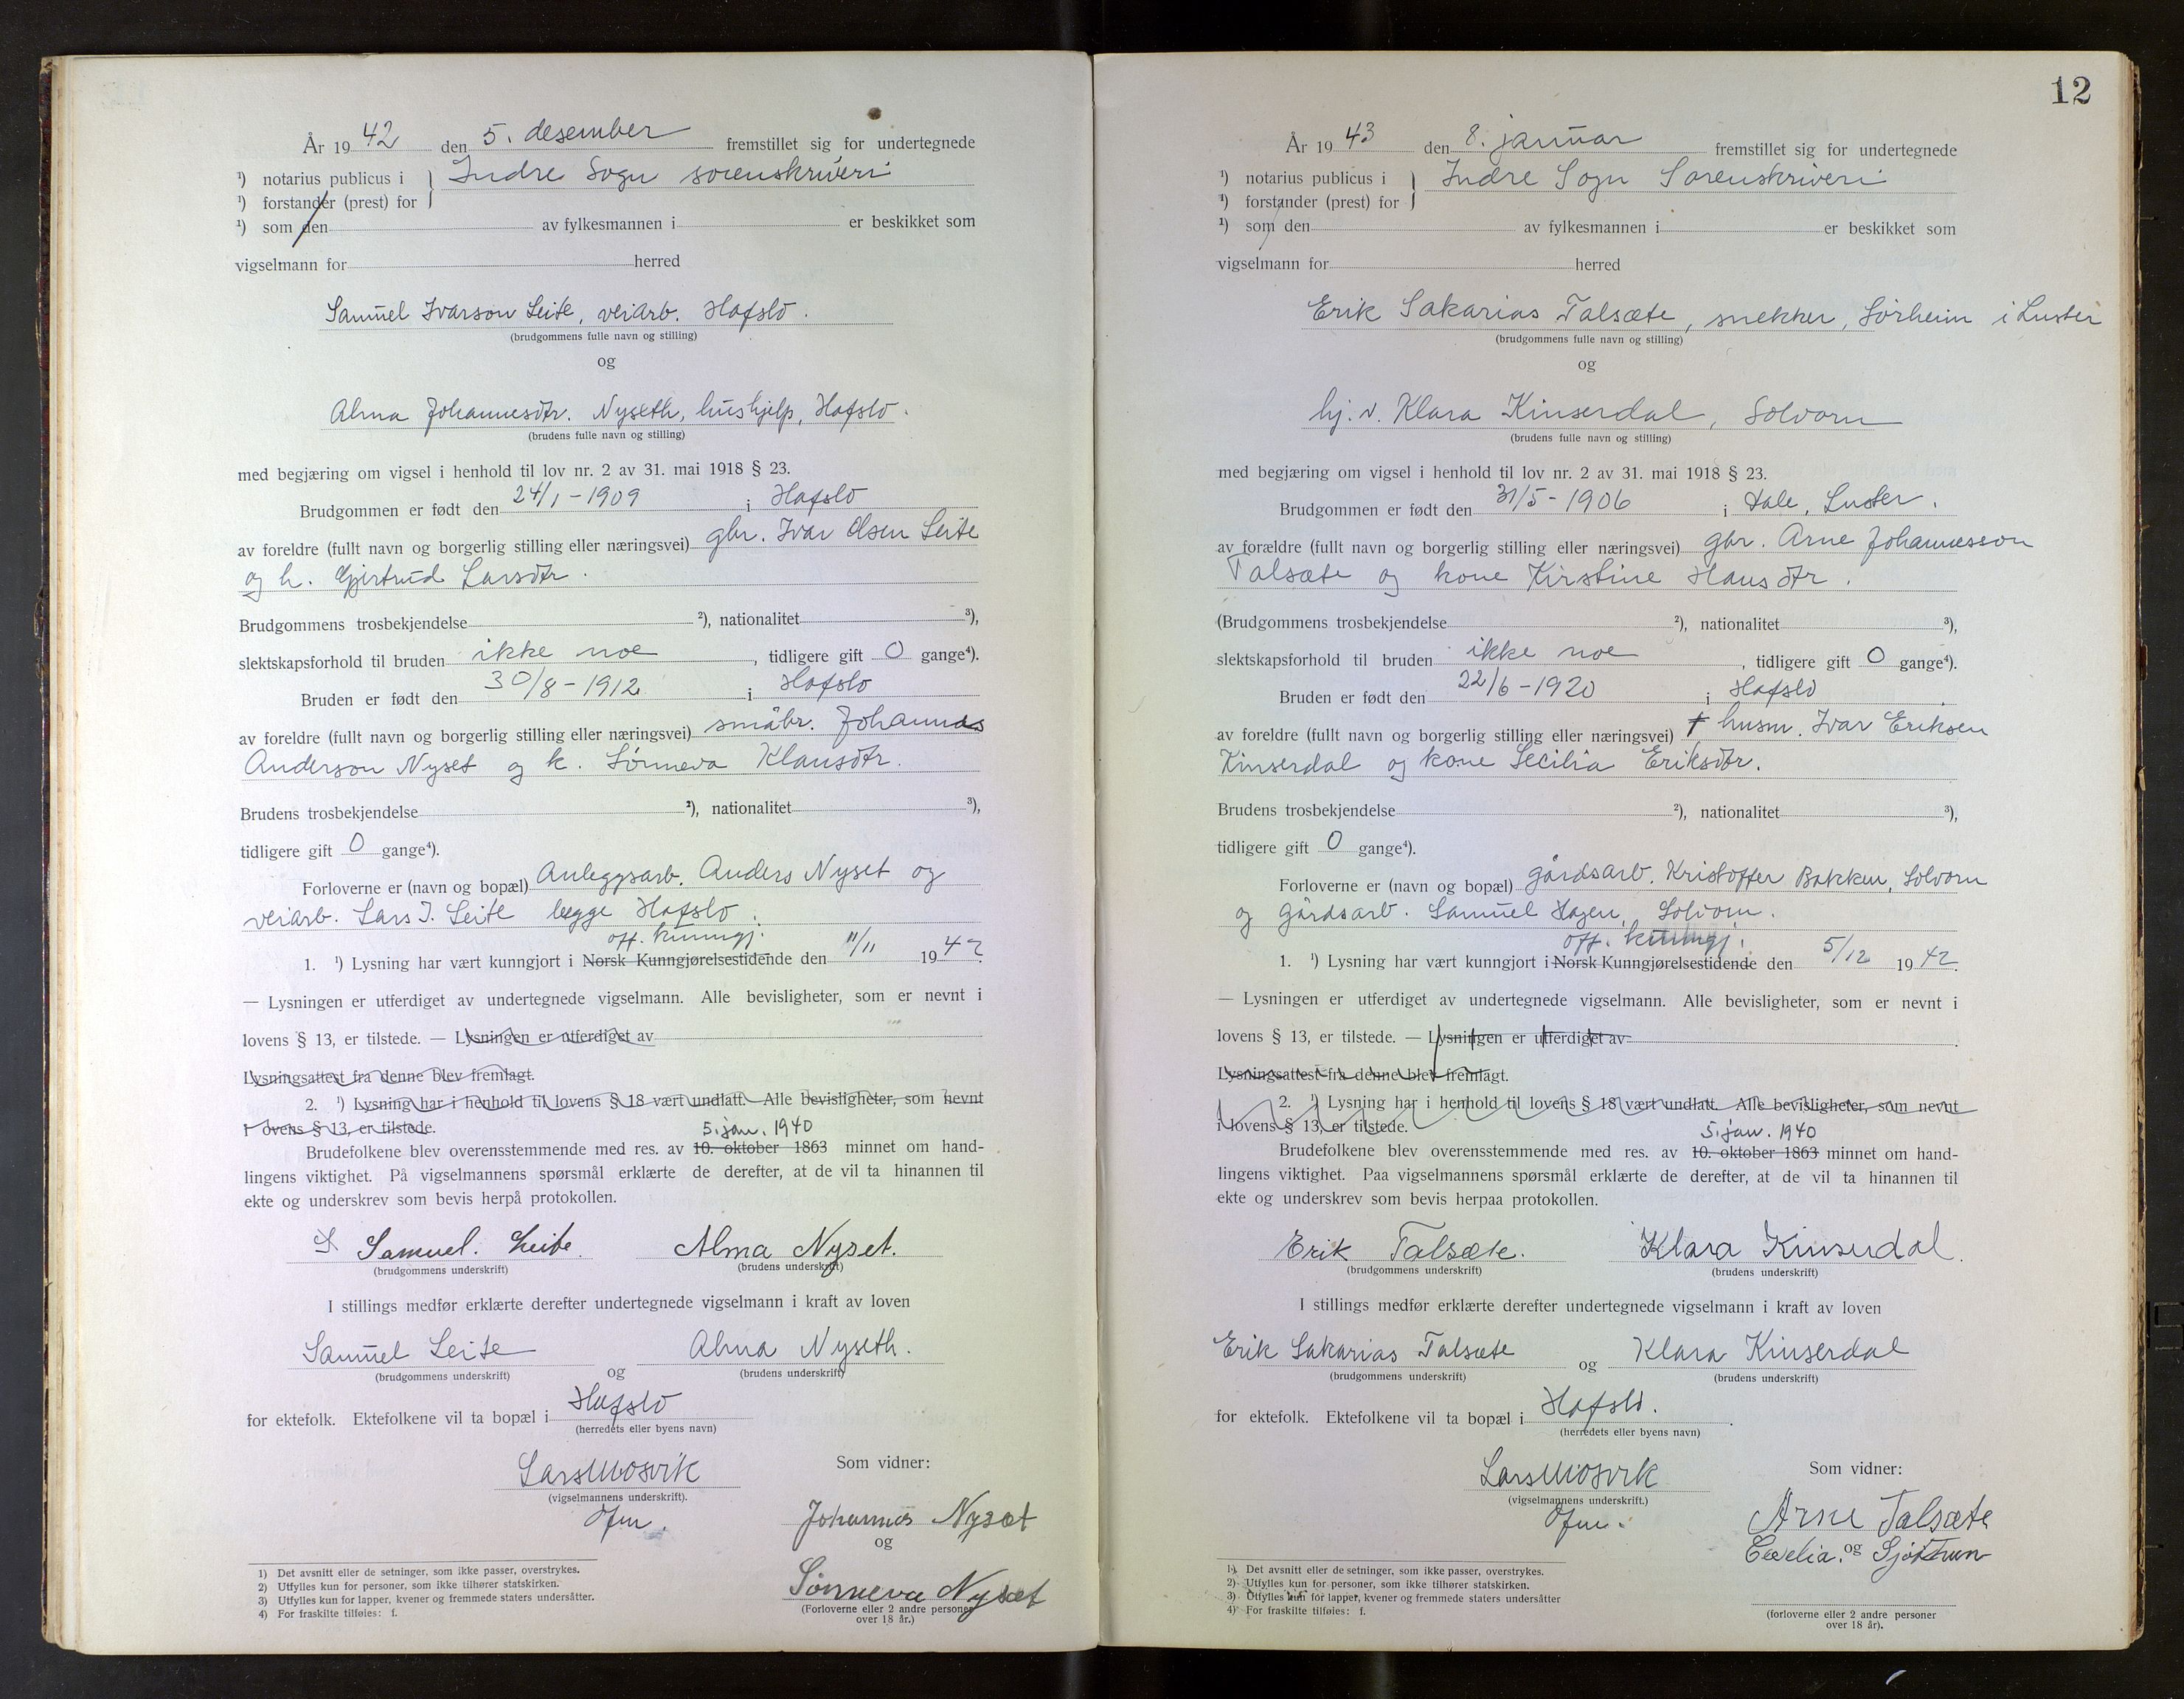 År 1942 den 5. desember fremstillet sig for undertegnede
¹) notarius publicus i } Indre Sogn sorenskriveri
¹) forstander (prest) for
¹) som den av fylkesmannen i er beskikket som
vigselmann for herred
Samuel Ivarson Leite, veiarb. Hafslo.
(brudgommens fulle navn og stilling)
og
Alma Johannesdtr. Nyseth, hushjelp, Hafslo.
(brudens fulle navn og stilling)
med begjæring om vigsel i henhold til lov nr. 2 av 31. mai 1918 § 23.
Brudgommen er født den 24/1-1909 i Hafslo
av foreldre (fullt navn og borgerlig stilling eller næringsvei) gbr. Ivar Olsen Leite
og h. Gjertrud Larsdtr.
Brudgommens trosbekjendelse ²), nationalitet ³),
slektskapsforhold til bruden ikke noe, tidligere gift 0 gange⁴).
Bruden er født den 30/8-1912 i Hafslo
av foreldre (fullt navn og borgerlig stilling eller næringsvei) småbr. Johannes
Anderson Nyset og k. Sönneva Klausdtr.
Brudens trosbekjendelse ²), nationalitet ³),
tidligere gift 0 gange⁴).
Forloverne er (navn og bopæl) Anleggsarb. Anders Nyset og
veiarb. Lars I. Leite begge Hafslo.
off. kunngj.
1. ¹) Lysning har vært kunngjort i Norsk Kunngjørelsestidende den 11/11 1942
— Lysningen er utferdiget av undertegnede vigselmann. Alle bevisligheter, som er nevnt i
lovens § 13, er tilstede. — Lysningen er utferdiget av
Lysningsattest fra denne blev fremlagt.
2. ¹) Lysning har i henhold til lovens § 18 vært undlatt. Alle bevisligheter, som nevnt
i lovens § 13, er tilstede.
5. jan. 1940
Brudefolkene blev overensstemmende med res. av 10. oktober 1863 minnet om hand-
lingens viktighet. På vigselmannens spørsmål erklærte de derefter, at de vil ta hinannen til
ekte og underskrev som bevis herpå protokollen.
Samuel. Leite. Alma Nyset.
(brudgommens underskrift) (brudens underskrift)
I stillings medfør erklærte derefter undertegnede vigselmann i kraft av loven
Samuel Leite og Alma Nyseth.
(brudgommens underskrift) (brudens underskrift)
for ektefolk. Ektefolkene vil ta bopæl i Hafslo
(herredets eller byens navn)
Lars Mosvik
(vigselmannens underskrift).
Som vidner:
Johannes Nyset
og
Sönneva Nyset
(Forloverne eller 2 andre personer
over 18 år.)
1) Det avsnitt eller de setninger, som ikke passer, overstrykes.
2) Utfylles kun for personer, som ikke tilhører statskirken.
3) Utfylles kun for lapper, kvener og fremmede staters undersåtter.
4) For fraskilte tilføies: f.
12
År 1943 den 8. januar fremstillet sig for undertegnede
¹) notarius publicus i } Indre Sogn Sorenskriveri
¹) forstander (prest) for
¹) som den av fylkesmannen i er beskikket som
vigselmann for herred
Erik Sakarias Talsæte, snekker, Sörheim i Luster
(brudgommens fulle navn og stilling)
og
hj. v. Klara Kinserdal, Solvorn
(brudens fulle navn og stilling)
med begjæring om vigsel i henhold til lov nr. 2 av 31. mai 1918 § 23.
Brudgommen er født den 31/5-1906 i Dale, Luster.
av forældre (fullt navn og borgerlig stilling eller næringsvei) gbr. Arne Johannesson
Talsæte og kone Kirstine Hansdtr.
(Brudgommens trosbekjendelse ²), nationalitet ³),
slektskapsforhold til bruden ikke noe, tidligere gift 0 gange⁴).
Bruden er født den 22/6-1920 i Hafslo
av foreldre (fullt navn og borgerlig stilling eller næringsvei) † husm. Ivar Eriksen
Kinserdal og kone Secilia Eriksdtr.
Brudens trosbekjendelse ²), nationalitet ³),
tidligere gift 0 gange⁴).
Forloverne er (navn og bopæl) gårdsarb. Kristoffer Bakken, Solvorn
og gårdsarb. Samuel Hagen, Solvorn.
off. kunngj.
1. ¹) Lysning har vært kunngjort i Norsk Kunngjørelsestidende den 5/12 1942.
— Lysningen er utferdiget av undertegnede vigselmann. Alle bevisligheter, som er nevnt i
lovens § 13, er tilstede. — Lysningen er utferdiget av
Lysningsattest fra denne blev fremlagt.
2. ¹) Lysning har i henhold til lovens § 18 vært undlatt. Alle bevisligheter, som nevnt
i lovens § 13, er tilstede.
5. jan. 1940
Brudefolkene blev overensstemmende med res. av 10. oktober 1863 minnet om hand-
lingens viktighet. Paa vigselmannens spørsmål erklærte de derefter, at de vil ta hinannen til
ekte og underskrev som bevis herpaa protokollen.
Erik Talsæte. Klara Kinserdal.
(brudgommens underskrift) (brudens underskrift)
I stillings medfør erklærte derefter undertegnede vigselmann i kraft av loven
Erik Sakarias Talsæte og Klara Kinserdal
(brudgommens underskrift) (brudens underskrift)
for ektefolk. Ektefolkene vil ta bopæl i Hafslo.
(herredets eller byens navn)
Lars Mosvik
(vigselmannens underskrift.)
Som vidner:
Arne Talsæte
og
(forloverne eller 2 andre personer
over 18 år).
1) Det avsnitt eller de setninger, som ikke passer, overstrykes.
2) Utfylles kun for personer, som ikke tilhører statskirken.
3) Utfylles kun for lapper, kvener og fremmede staters undersåtter
4) For fraskilte tilføies: f.